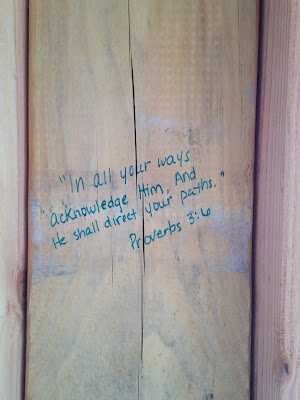 "In all your ways
"acknowledge Him, And
He shall direct your paths."
Proverbs 3:6